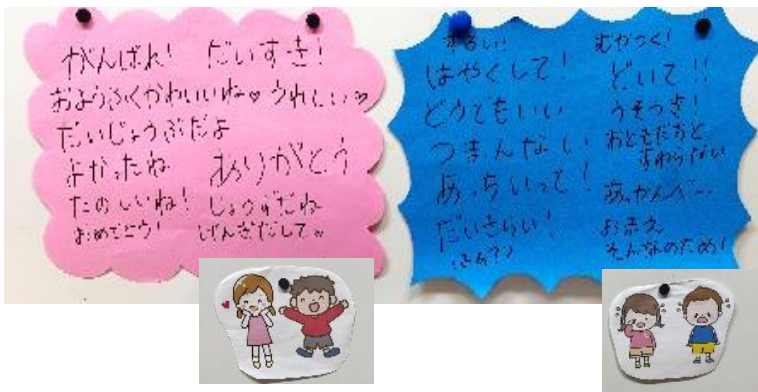 がんばれ! だいすき!
おようふくかわいいね♡ うれしい♡
だいじょうぶだよ
よかったね ありがとう
たのしいね! じょうずだね
おめでとう! げんきだして
ずるい! むかつく!
はやくして! どいて!!
どうでもいい うそつき!
つまんない おともだちと
すわらない
あっちいって! あっかんべー
だいきらい! おまえ
そんなのだめ!